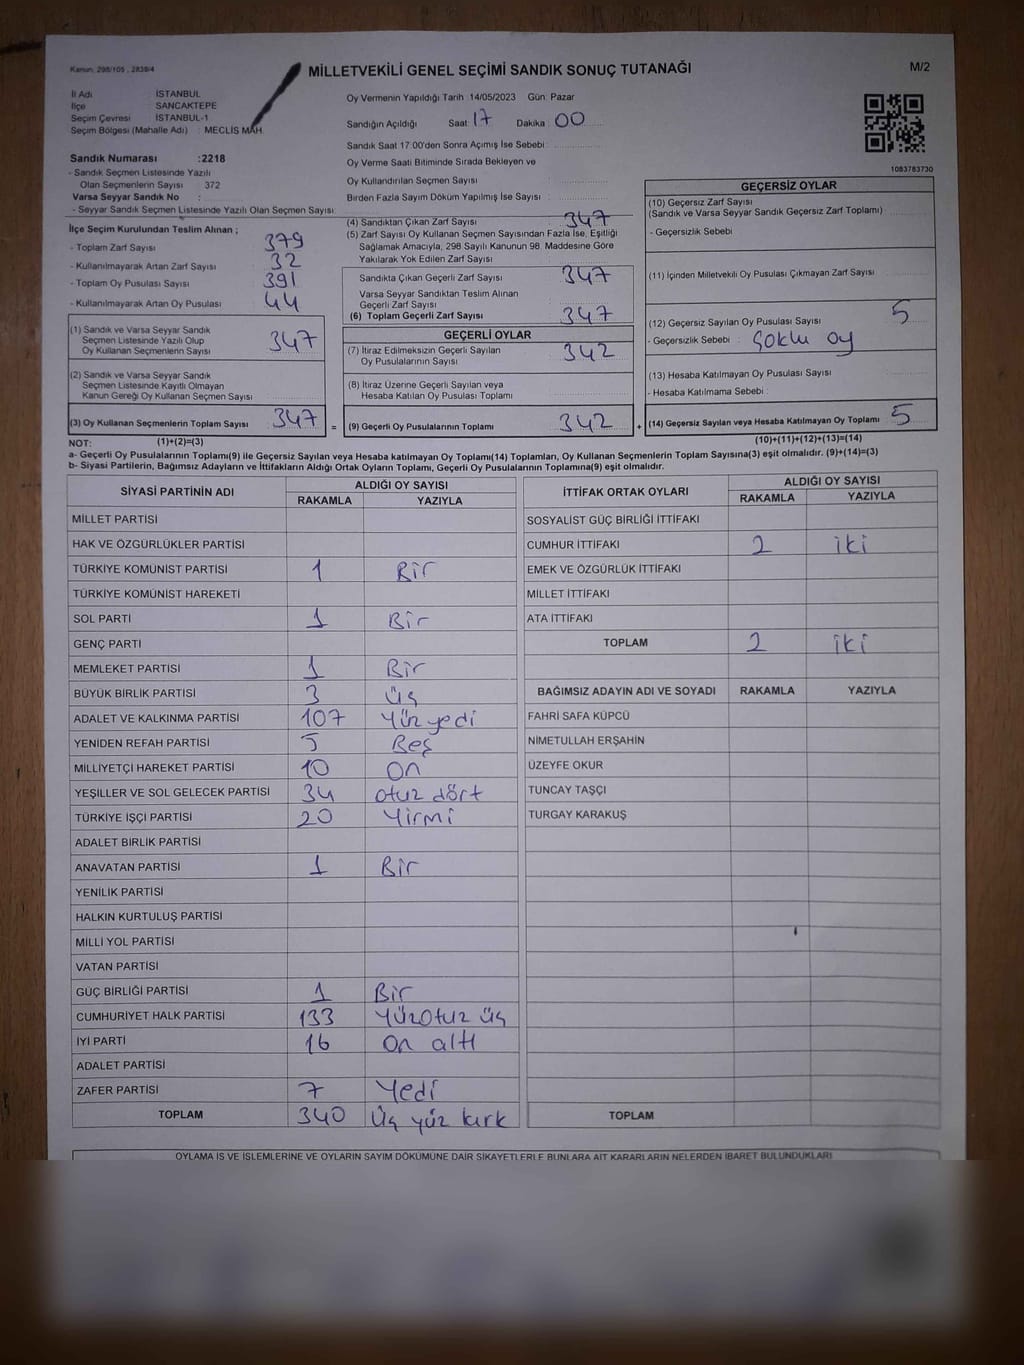 Kanun: 298/105 , 2839/4
MİLLETVEKİLİ GENEL SEÇİMİ SANDIK SONUÇ TUTANAĞI
M/2
İl Adı : İSTANBUL
İlçe : SANCAKTEPE
Seçim Çevresi : İSTANBUL-1
Seçim Bölgesi (Mahalle Adı) : MECLİS MAH.
Oy Vermenin Yapıldığı Tarih 14/05/2023 Gün: Pazar
Sandığın Açıldığı Saat 17 Dakika 00
Sandık Saat 17:00'den Sonra Açımış İse Sebebi:
Oy Verme Saati Bitiminde Sırada Bekleyen ve
Oy Kullandırılan Seçmen Sayısı
Birden Fazla Sayım Döküm Yapılmış İse Sayısı :
1083783730
Sandık Numarası :2218
- Sandık Seçmen Listesinde Yazılı
Olan Seçmenlerin Sayısı : 372
Varsa Seyyar Sandık No :
- Seyyar Sandık Seçmen Listesinde Yazılı Olan Seçmen Sayısı
İlçe Seçim Kurulundan Teslim Alınan ;
- Toplam Zarf Sayısı 379
- Kullanılmayarak Artan Zarf Sayısı 32
- Toplam Oy Pusulası Sayısı 391
- Kullanılmayarak Artan Oy Pusulası 44
(1) Sandık ve Varsa Seyyar Sandık
Seçmen Listesinde Yazılı Olup
Oy Kullanan Seçmenlerin Sayısı 347
(2) Sandık ve Varsa Seyyar Sandık
Seçmen Listesinde Kayıtlı Olmayan
Kanun Gereği Oy Kullanan Seçmen Sayısı
(3) Oy Kullanan Seçmenlerin Toplam Sayısı 347 =
(4) Sandıktan Çıkan Zarf Sayısı 347
(5) Zarf Sayısı Oy Kullanan Seçmen Sayısından Fazla İse, Eşitliği
Sağlamak Amacıyla, 298 Sayılı Kanunun 98. Maddesine Göre
Yakılarak Yok Edilen Zarf Sayısı
Sandıkta Çıkan Geçerli Zarf Sayısı 347
Varsa Seyyar Sandıktan Teslim Alınan
Geçerli Zarf Sayısı
(6) Toplam Geçerli Zarf Sayısı 347
GEÇERLİ OYLAR
(7) İtiraz Edilmeksizin Geçerli Sayılan
Oy Pusulalarının Sayısı 342
(8) İtiraz Üzerine Geçerli Sayılan veya
Hesaba Katılan Oy Pusulası Toplamı
(9) Geçerli Oy Pusulalarının Toplamı 342 +
GEÇERSİZ OYLAR
(10) Geçersiz Zarf Sayısı
(Sandık ve Varsa Seyyar Sandık Geçersiz Zarf Toplamı)
- Geçersizlik Sebebi :
(11) İçinden Milletvekili Oy Pusulası Çıkmayan Zarf Sayısı
(12) Geçersiz Sayılan Oy Pusulası Sayısı 5
- Geçersizlik Sebebi : çoklu oy
(13) Hesaba Katılmayan Oy Pusulası Sayısı
- Hesaba Katılmama Sebebi :
(14) Geçersiz Sayılan veya Hesaba Katılmayan Oy Toplamı 5
NOT: (1)+(2)=(3) (10)+(11)+(12)+(13)=(14)
a- Geçerli Oy Pusulalarının Toplamı(9) ile Geçersiz Sayılan veya Hesaba katılmayan Oy Toplamı(14) Toplamları, Oy Kullanan Seçmenlerin Toplam Sayısına(3) eşit olmalıdır. (9)+(14)=(3)
b- Siyasi Partilerin, Bağımsız Adayların ve İttifakların Aldığı Ortak Oyların Toplamı, Geçerli Oy Pusulalarının Toplamına(9) eşit olmalıdır.
SİYASİ PARTİNİN ADI ALDIĞI OY SAYISI
RAKAMLA YAZIYLA
MİLLET PARTİSİ
HAK VE ÖZGÜRLÜKLER PARTİSİ
TÜRKİYE KOMÜNİST PARTİSİ 1 Bir
TÜRKİYE KOMÜNİST HAREKETİ
SOL PARTİ 1 Bir
GENÇ PARTİ
MEMLEKET PARTİSİ 1 Bir
BÜYÜK BİRLİK PARTİSİ 3 üç
ADALET VE KALKINMA PARTİSİ 107 Yüz yedi
YENİDEN REFAH PARTİSİ 5 Beş
MİLLİYETÇİ HAREKET PARTİSİ 10 On
YEŞİLLER VE SOL GELECEK PARTİSİ 34 otuz dört
TÜRKİYE İŞÇİ PARTİSİ 20 Yirmi
ADALET BİRLİK PARTİSİ
ANAVATAN PARTİSİ 1 Bir
YENİLİK PARTİSİ
HALKIN KURTULUŞ PARTİSİ
MİLLİ YOL PARTİSİ
VATAN PARTİSİ
GÜÇ BİRLİĞİ PARTİSİ 1 Bir
CUMHURİYET HALK PARTİSİ 133 Yüzotuz üç
İYİ PARTİ 16 On altı
ADALET PARTİSİ
ZAFER PARTİSİ 7 Yedi
TOPLAM 340 Üç yüz kırk
İTTİFAK ORTAK OYLARI ALDIĞI OY SAYISI
RAKAMLA YAZIYLA
SOSYALİST GÜÇ BİRLİĞİ İTTİFAKI
CUMHUR İTTİFAKI 2 iki
EMEK VE ÖZGÜRLÜK İTTİFAKI
MİLLET İTTİFAKI
ATA İTTİFAKI
TOPLAM 2 iki
BAĞIMSIZ ADAYIN ADI VE SOYADI RAKAMLA YAZIYLA
FAHRİ SAFA KÜPCÜ
NİMETULLAH ERŞAHİN
ÜZEYFE OKUR
TUNCAY TAŞÇI
TURGAY KARAKUŞ
TOPLAM
OYLAMA İŞ VE İŞLEMLERİNE VE OYLARIN SAYIM DÖKÜMÜNE DAİR ŞİKAYETLERLE BUNLARA AİT KARARLARIN NELERDEN İBARET BULUNDUKLARI